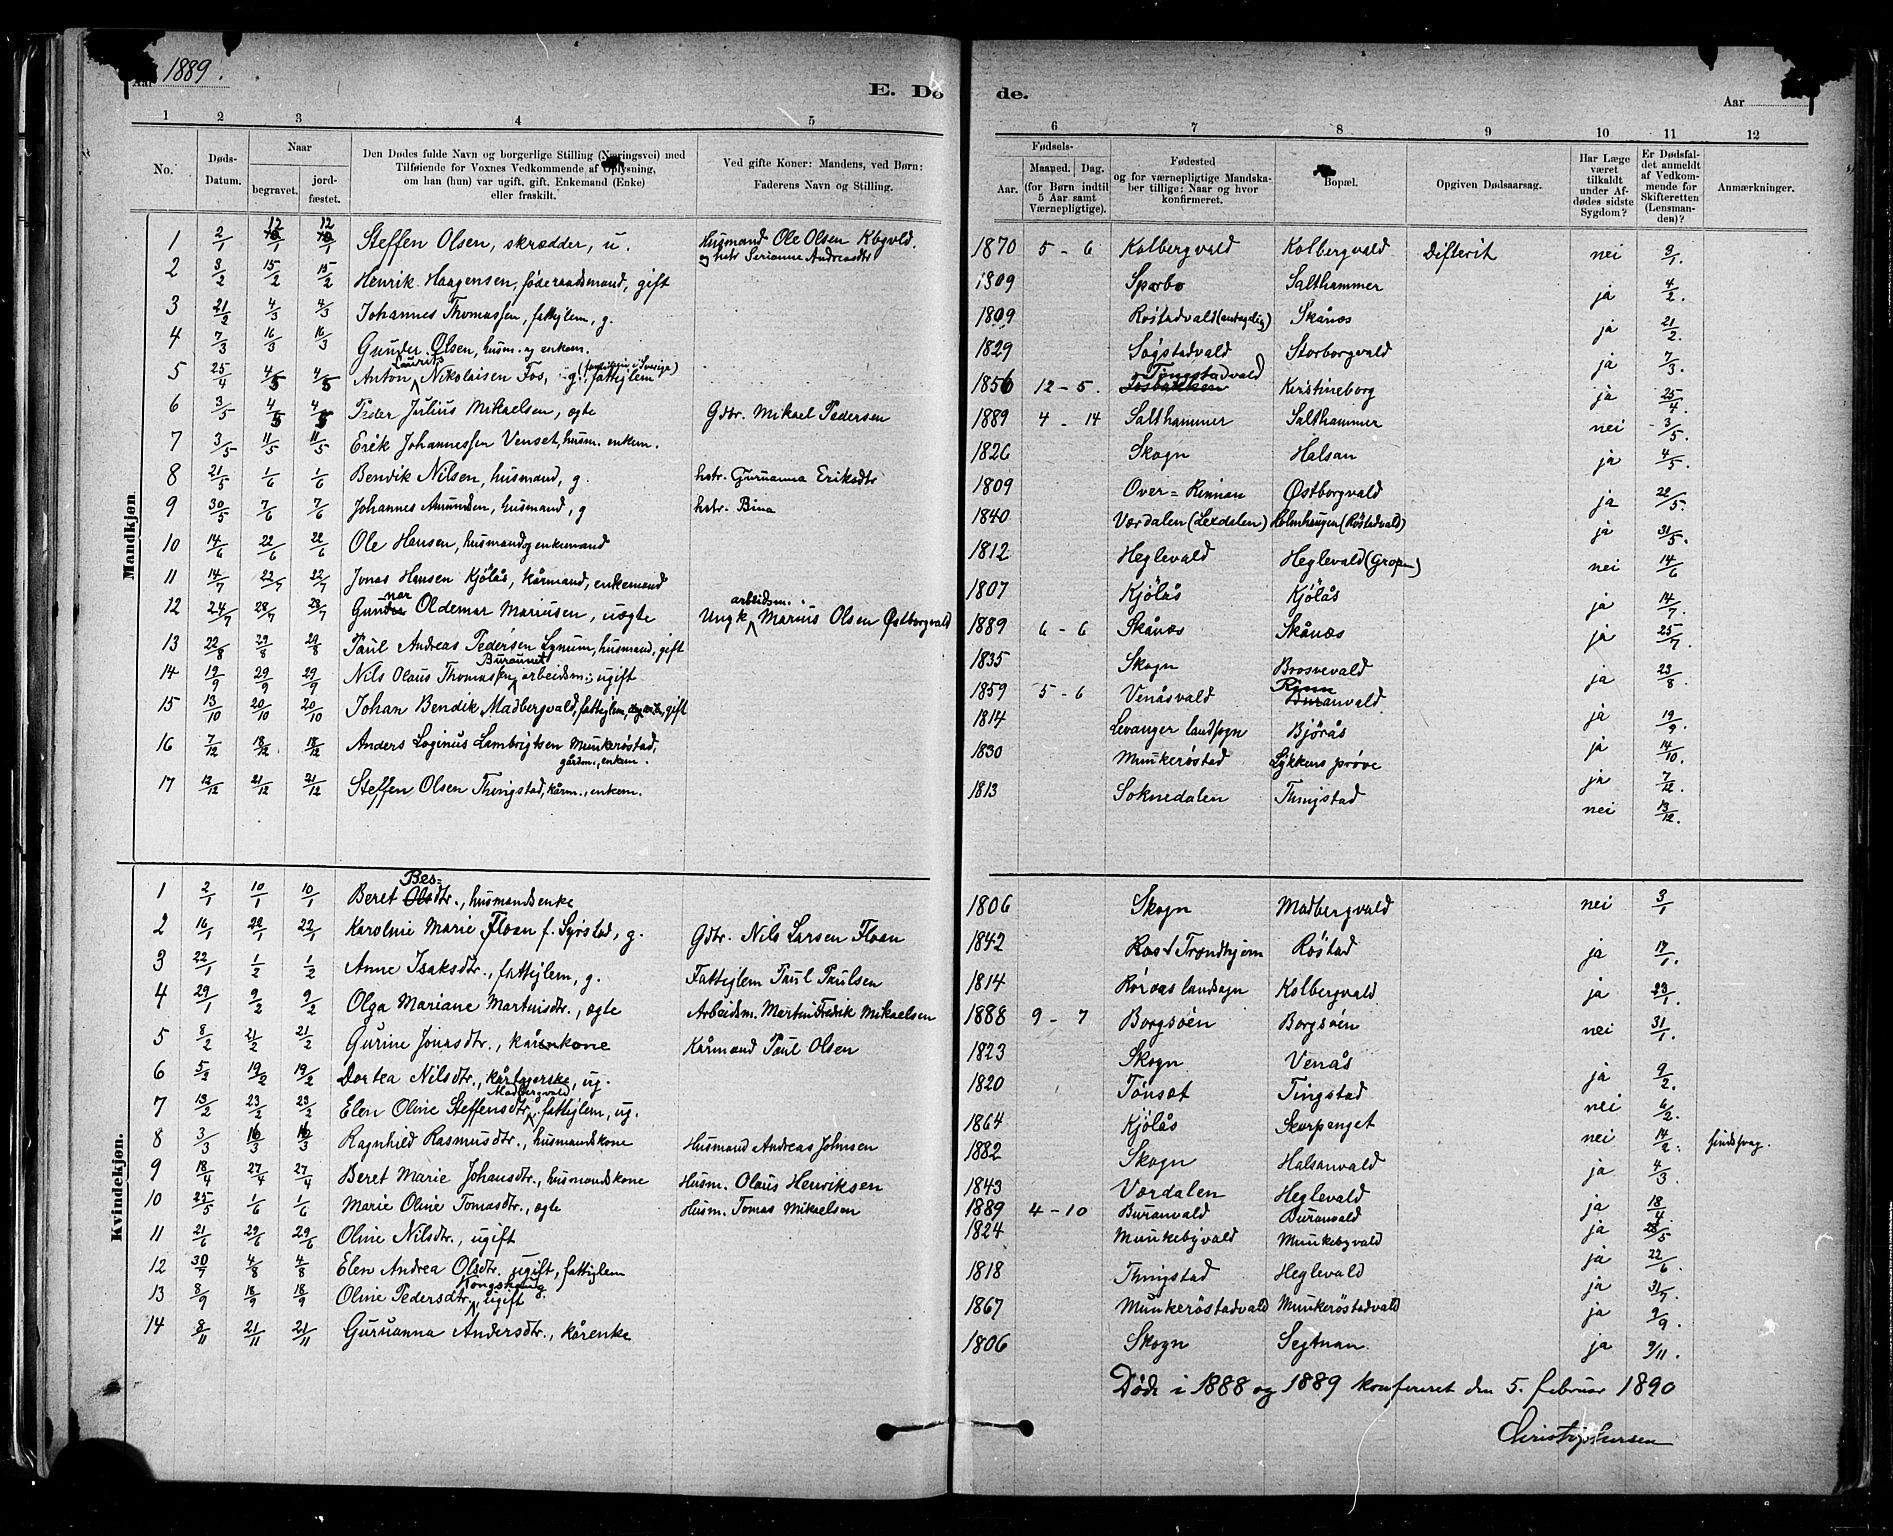 Aar 1889.
E. Dö de.
Aar
1 2 3 4 5 6 7 8 9 10 11 12
No. Døds-Datum. Naar begravet. jordfæstet. Den Dødes fulde Navn og borgerlige Stilling (Næringsvei) med Tilføiende for Voxnes Vedkommende af Oplysning, om han (hun) var ugift, gift, Enkemand (Enke) eller fraskilt. Ved gifte Koner: Mandens, ved Børn: Faderens Navn og Stilling. Fødsels- Aar. Maaned. Dag. (for Børn indtil 5 Aar samt Værnepligtige). Fødested og for værnepligtige Mandskaber tillige: Naar og hvor konfirmeret. Bopæl. Opgiven Dødsaarsag. Har Læge været tilkaldt under Afdødes sidste Sygdom? Er Dødsfaldet anmeldt af Vedkommende for Skifteretten (Lensmanden)? Anmærkninger.
Mandkjøn.
1 2/1 12/1 12/1 Steffen Olsen, skrædder, u. Husmand Ole Olsen Kbgvld. og hstr Serianne Andreasdtr 1870 5 - 6 Kolbergvald Kolbergvald Difterit nei 3/1.
2 3/2 15/2 15/2 Henrik Haagensen, føderaadsmand, gift 1809 Sparbo Salthammer ja 4/2.
3 21/2 4/3 4/3 Johannes Thomassen, fattiglem, g. 1809 Røstadvald (antagelig) Skånes ja 21/2.
4 7/3 16/3 16/3 Gunder Olsen, husm. og enkem. 1829 Søgstadvald Storborgvald ja 7/3.
5 25/4 4/5 4/5 Anton Laurits Nikolaisen Fos, g., fattiglem 1856 12 - 5 Tingstadvald Kristineborg ja 25/4.
6 3/5 4/5 4/5 Peder Julius Mikaelsen, ægte Gdbr. Mikael Pedersen 1889 4 - 14 Salthammer Salthammer nei 3/5.
7 3/5 11/5 11/5 Erik Johannessen Venset, husm. enkem. 1826 Skogn Halsan ja 4/5.
8 21/5 1/6 1/6 Benvik Nilsen, husmand, g. hstr. Guruanna Eriksdtr 1809 Over-Rinnan Østborgvald ja 22/5.
9 30/5 7/6 7/6 Johannes Amundsen, husmand, g hstr. Bina 1840 Værdalen (Lexdalen) Holmhaugen (Røstadvald) ja 31/5.
10 14/6 22/6 22/6 Ole Hansen, husmand og enkemand 1812 Heglevald Heglevald (Gropen) nei 14/6
11 14/7 22/7 22/7 Jonas Hansen Kjølås, kårmand, enkemand 1807 Kjølås Kjølås ja 14/7.
12 24/7 28/7 28/7 Gunnar Oldemar Mariusen, uægte Ungk. arbeidsm. Marius Olsen Østborgvald 1889 6 - 6 Skånes Skånes ja 25/7.
13 22/8 29/8 29/8 Paul Andreas Pedersen Lynum, husmand, gift 1835 Skogn Brosvevald ja 23/8
14 19/9 29/9 29/9 Nils Olaus Thomassen Buraunet arbeidsm., ugift 1859 5 - 6 Venåsvald Rinnanvald ja 19/9.
15 13/10 20/10 20/10 Johan Bendik Madbergvald, fattiglem, gift 1814 Levanger landsogn Bjørås ja 14/10.
16 7/12 18/12 18/12 Anders Loginus Lambrigtsen Munkerøstad, gårdm., enkem. 1830 Munkerøstad Lykkens prøve ja 7/12.
17 12/12 21/12 21/12 Steffen Olsen Thingstad, kårm., enkem. 1813 Soknedalen Thingstad nei 13/12.
Kvindekjøn.
1 2/1 10/1 10/1 Beret Bes=dtr., husmandsenke 1806 Skogn Madbergvald nei 3/1
2 16/1 22/1 22/1 Karoline Marie Floan f. Syrstad, g. Gdbr. Nils Larsen Floan 1842 Trondhjem Røstad ja 17/1.
3 22/1 1/2 1/2 Anne Isaksdtr., fattiglem, g. Fattiglem Paul Paulsen 1814 Røraas landsogn Kolbergvald ja 23/1.
4 29/1 9/2 9/2 Olga Mariane Martinisdtr., ægte Arbeidsm. Martin Fredrik Mikaelsen 1888 9 - 7 Borgsøen Borgsøen nei 31/1.
5 8/2 21/2 21/2 Gurine Jonasdtr., kårkone Kårmand Paul Olsen 1823 Skogn Venås ja 9/2.
6 5/2 19/2 19/2 Dortea Nilsdtr., kårtagerske, ug. 1820 Tønset Tingstad nei 6/2.
7 13/2 23/2 23/2 Elen Oline Steffensdtr. Madbergvald, fattiglem, ug. 1864 Kjølås Skarpenget nei 14/2. sindssvag.
8 3/3 16/3 16/3 Ragnhild Rasmusdtr., husmandskone Husmand Andreas Johnsen 1882 Skogn Halsanvald ja 4/3
9 18/4 27/4 27/4 Beret Marie Johansdtr., husmandskone Husm. Olaus Henriksen 1843 Værdalen Heglevald ja 18/4
10 25/5 1/6 1/6 Marie Oline Tomasdtr., ægte Husm. Tomas Mikaelsen 1889 4 - 10 Buranvald Buranvald ja 28/5
11 21/6 29/6 29/6 Oline Nilsdtr., ugift 1824 Munkebyvald Munkebyvald ja 22/6.
12 30/7 4/8 4/8 Elen Andrea Olsdtr. ugift, fattiglem 1818 Thingstad Heglevald ja 31/7.
13 8/9 18/9 18/9 Oline Pedersdtr. Kongshaug, ugift 1867 Munkerøstadvald Munkerøstadvald ja 9/9.
14 8/11 21/11 21/11 Guruanna Andersdtr., kårenke 1806 Skogn Segtnan ja 9/11.
Døde i 1888 og 1889 konfereret den 5. februar 1890
Christophersen